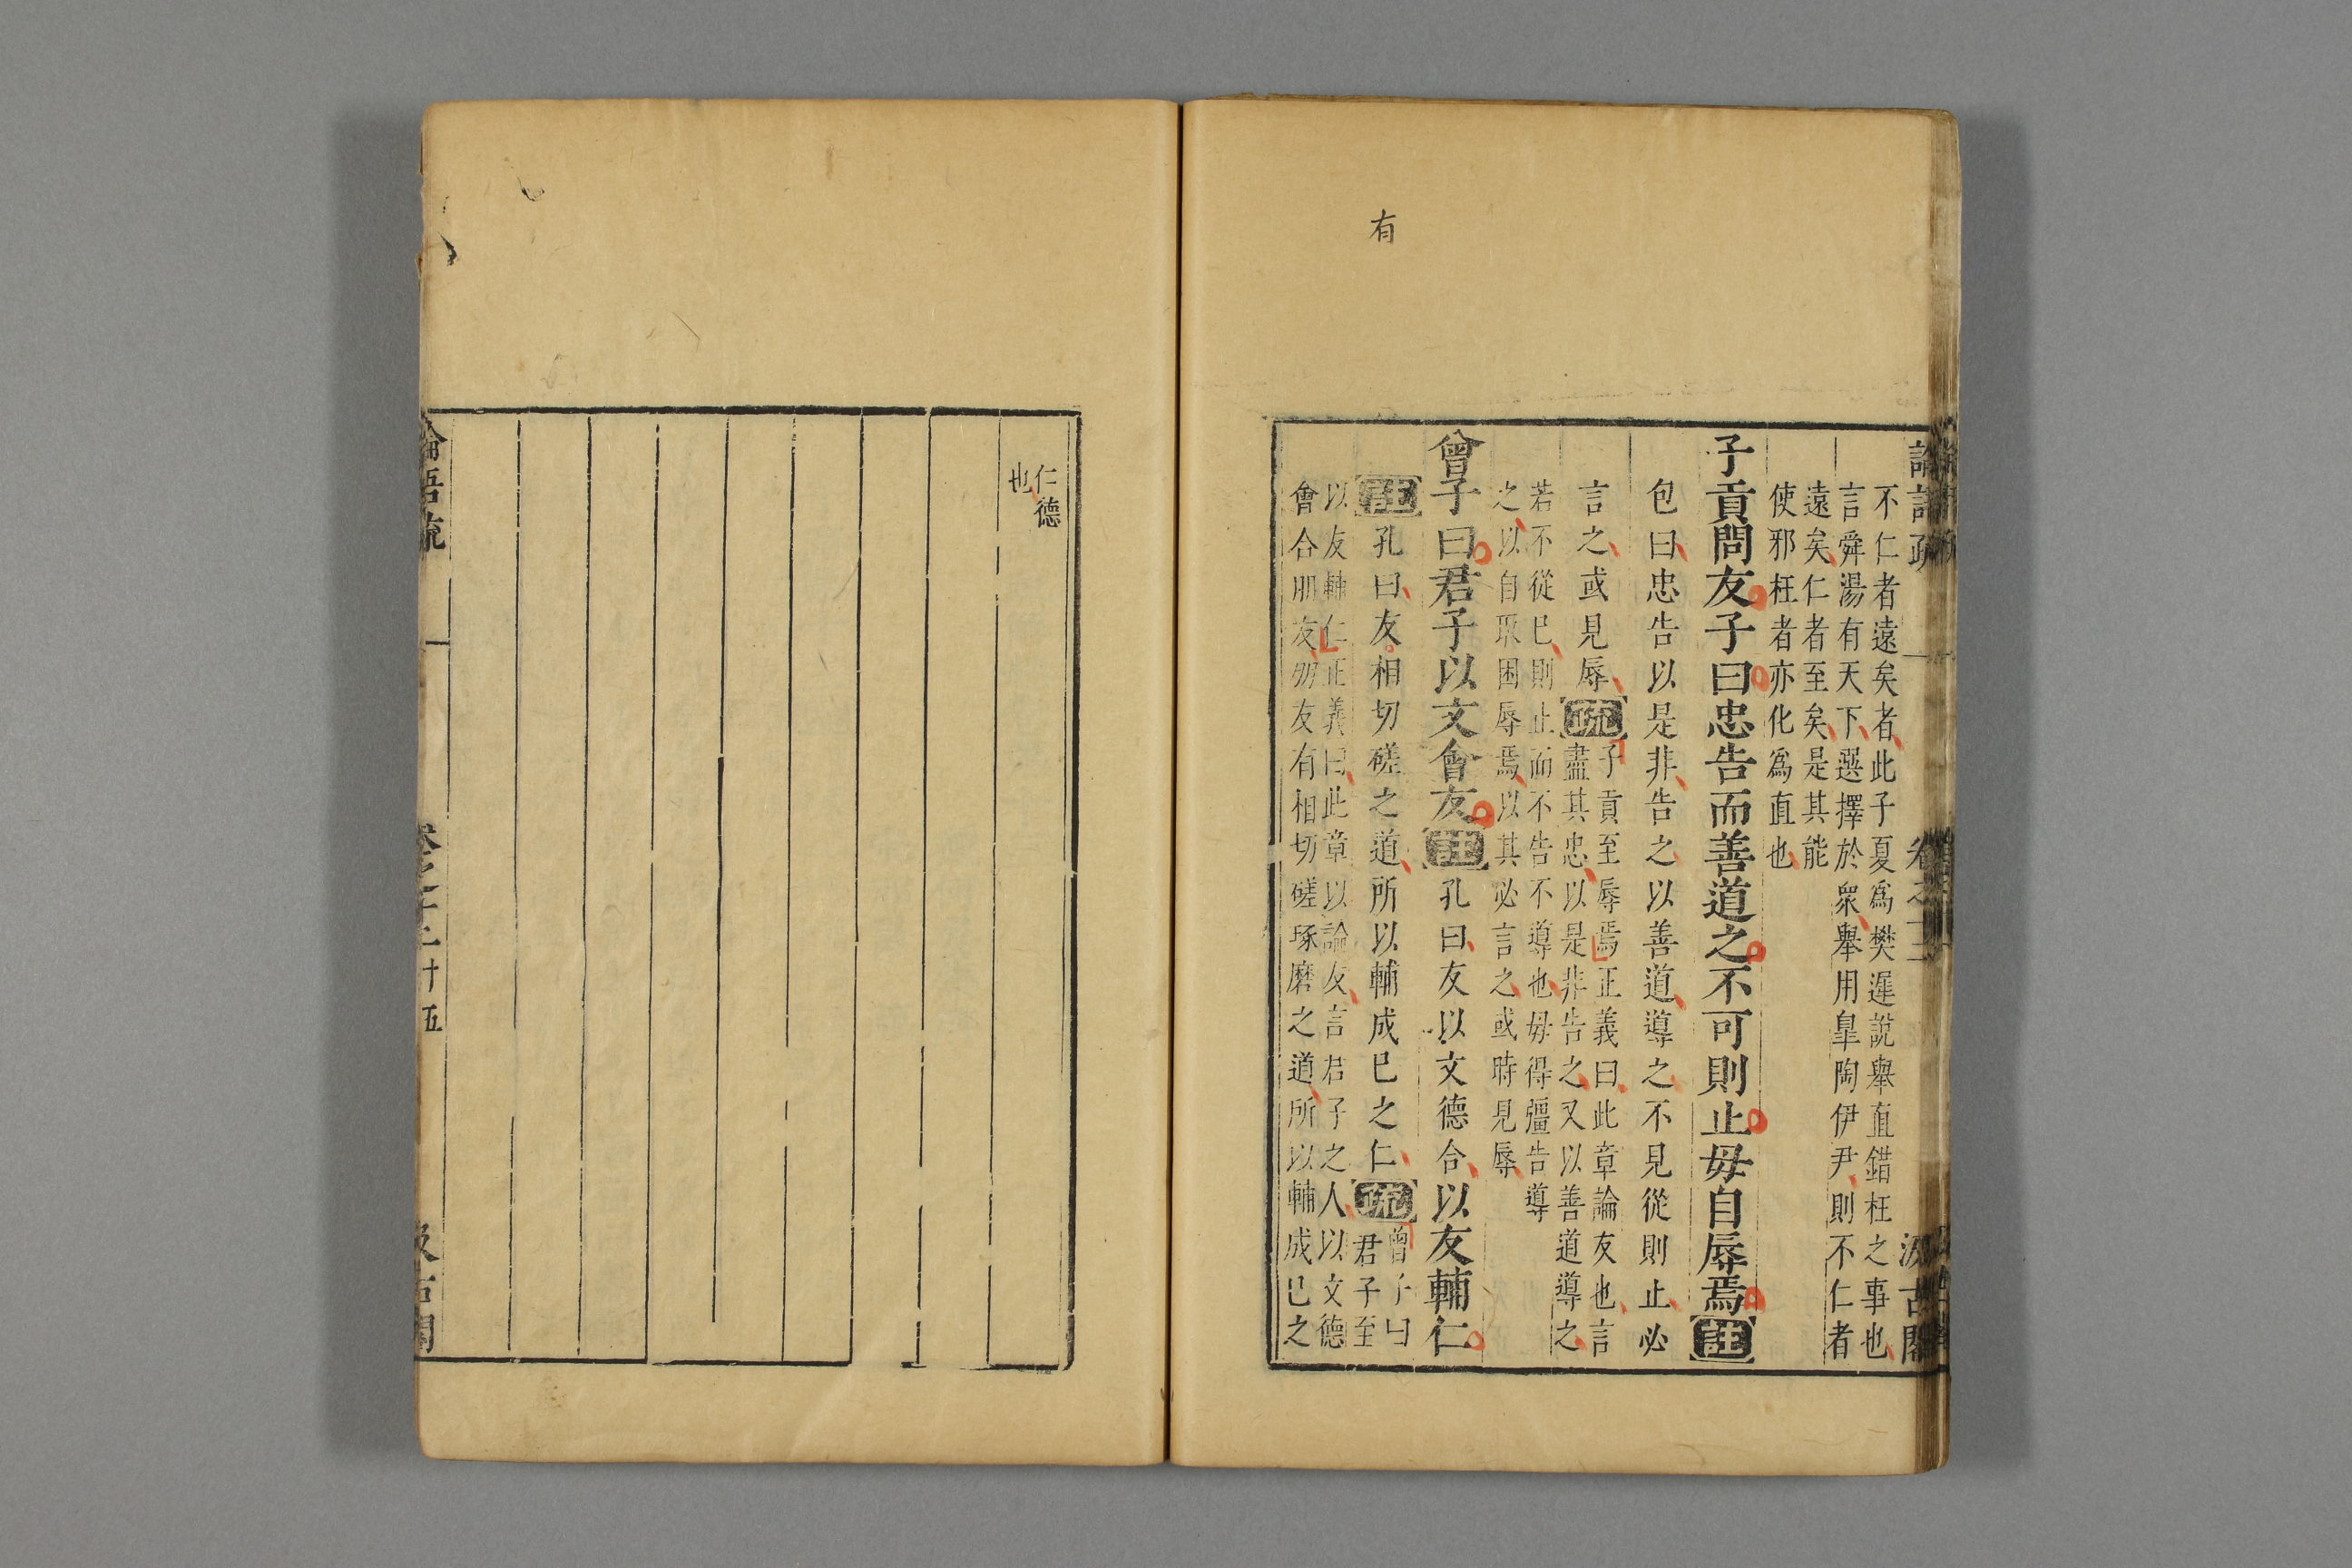 有
不仁者遠矣者此子夏爲樊遲說舉直錯枉之事也
言舜湯有天下選擇於衆舉用臯陶伊尹則不仁者
遠矣仁者至矣是其能
使邪枉者亦化爲直也
子貢問友子曰忠告而善道之不可則止毋自辱焉註
包曰忠告以是非告之以善道導之不見從則止必
言之或見辱疏
子貢至辱焉正義曰此章論友也言
盡其忠以是非告之又以善道導之
若不從已則止而不告不導也毋得彊告導
之以自取困辱焉以其必言之或時見辱
曾子曰君子以文會友註孔曰友以文德合以友輔仁
註孔曰友相切磋之道所以輔成已之仁疏
曾子曰
君子至
以友輔仁正義曰此章以論友言君子之人以文德
會合朋友朋友有相切磋琢磨之道所以輔成已之
仁德
也
論語疏
卷之十二
十五
汲古閣